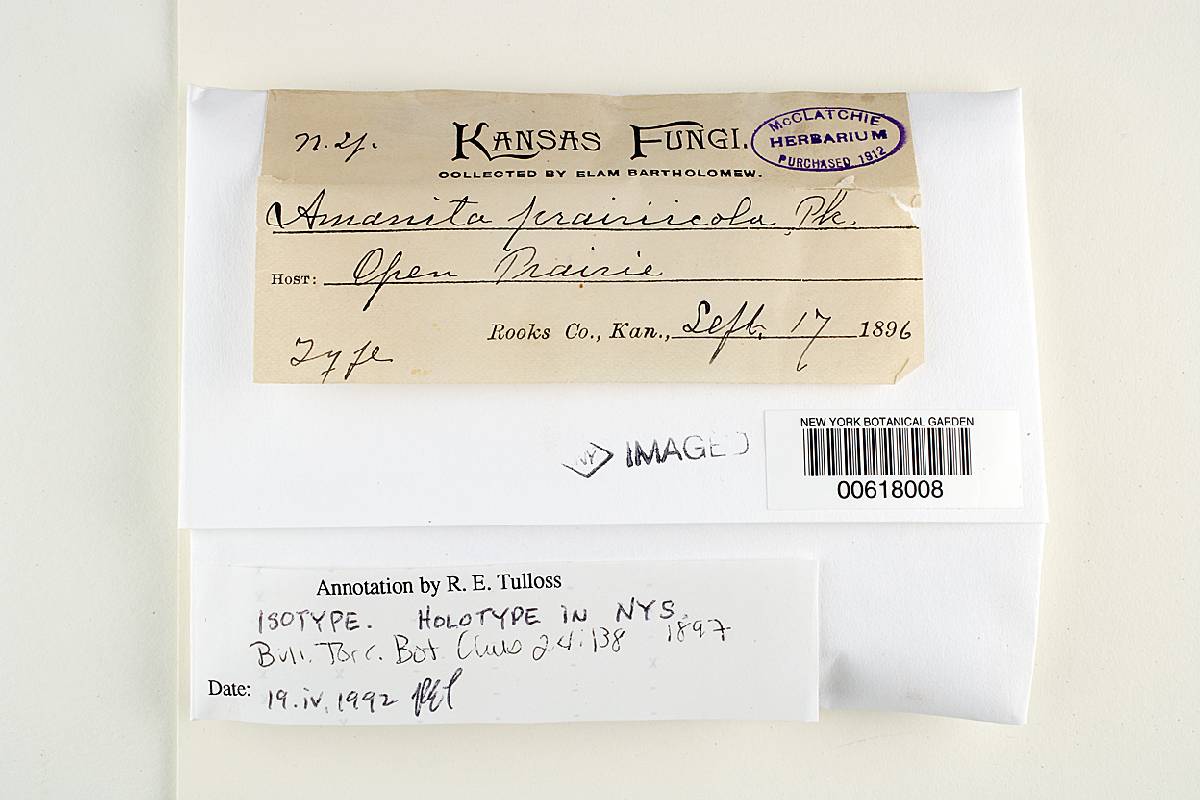 n. sp.
KANSAS FUNGI.
COLLECTED BY ELAM BARTHOLOMEW.
McCLATCHIE
HERBARIUM
PURCHASED 1912
Amanita prairiicola Pk.
HOST: Open Prairie
Rooks Co., Kan., Sept. 17 1896
Type
NY IMAGED
NEW YORK BOTANICAL GARDEN
00618008
Annotation by R. E. Tulloss
ISOTYPE. HOLOTYPE IN NYS.
Bull. Torr. Bot. Club 24: 138 1897
Date: 19.iv.1992 RET